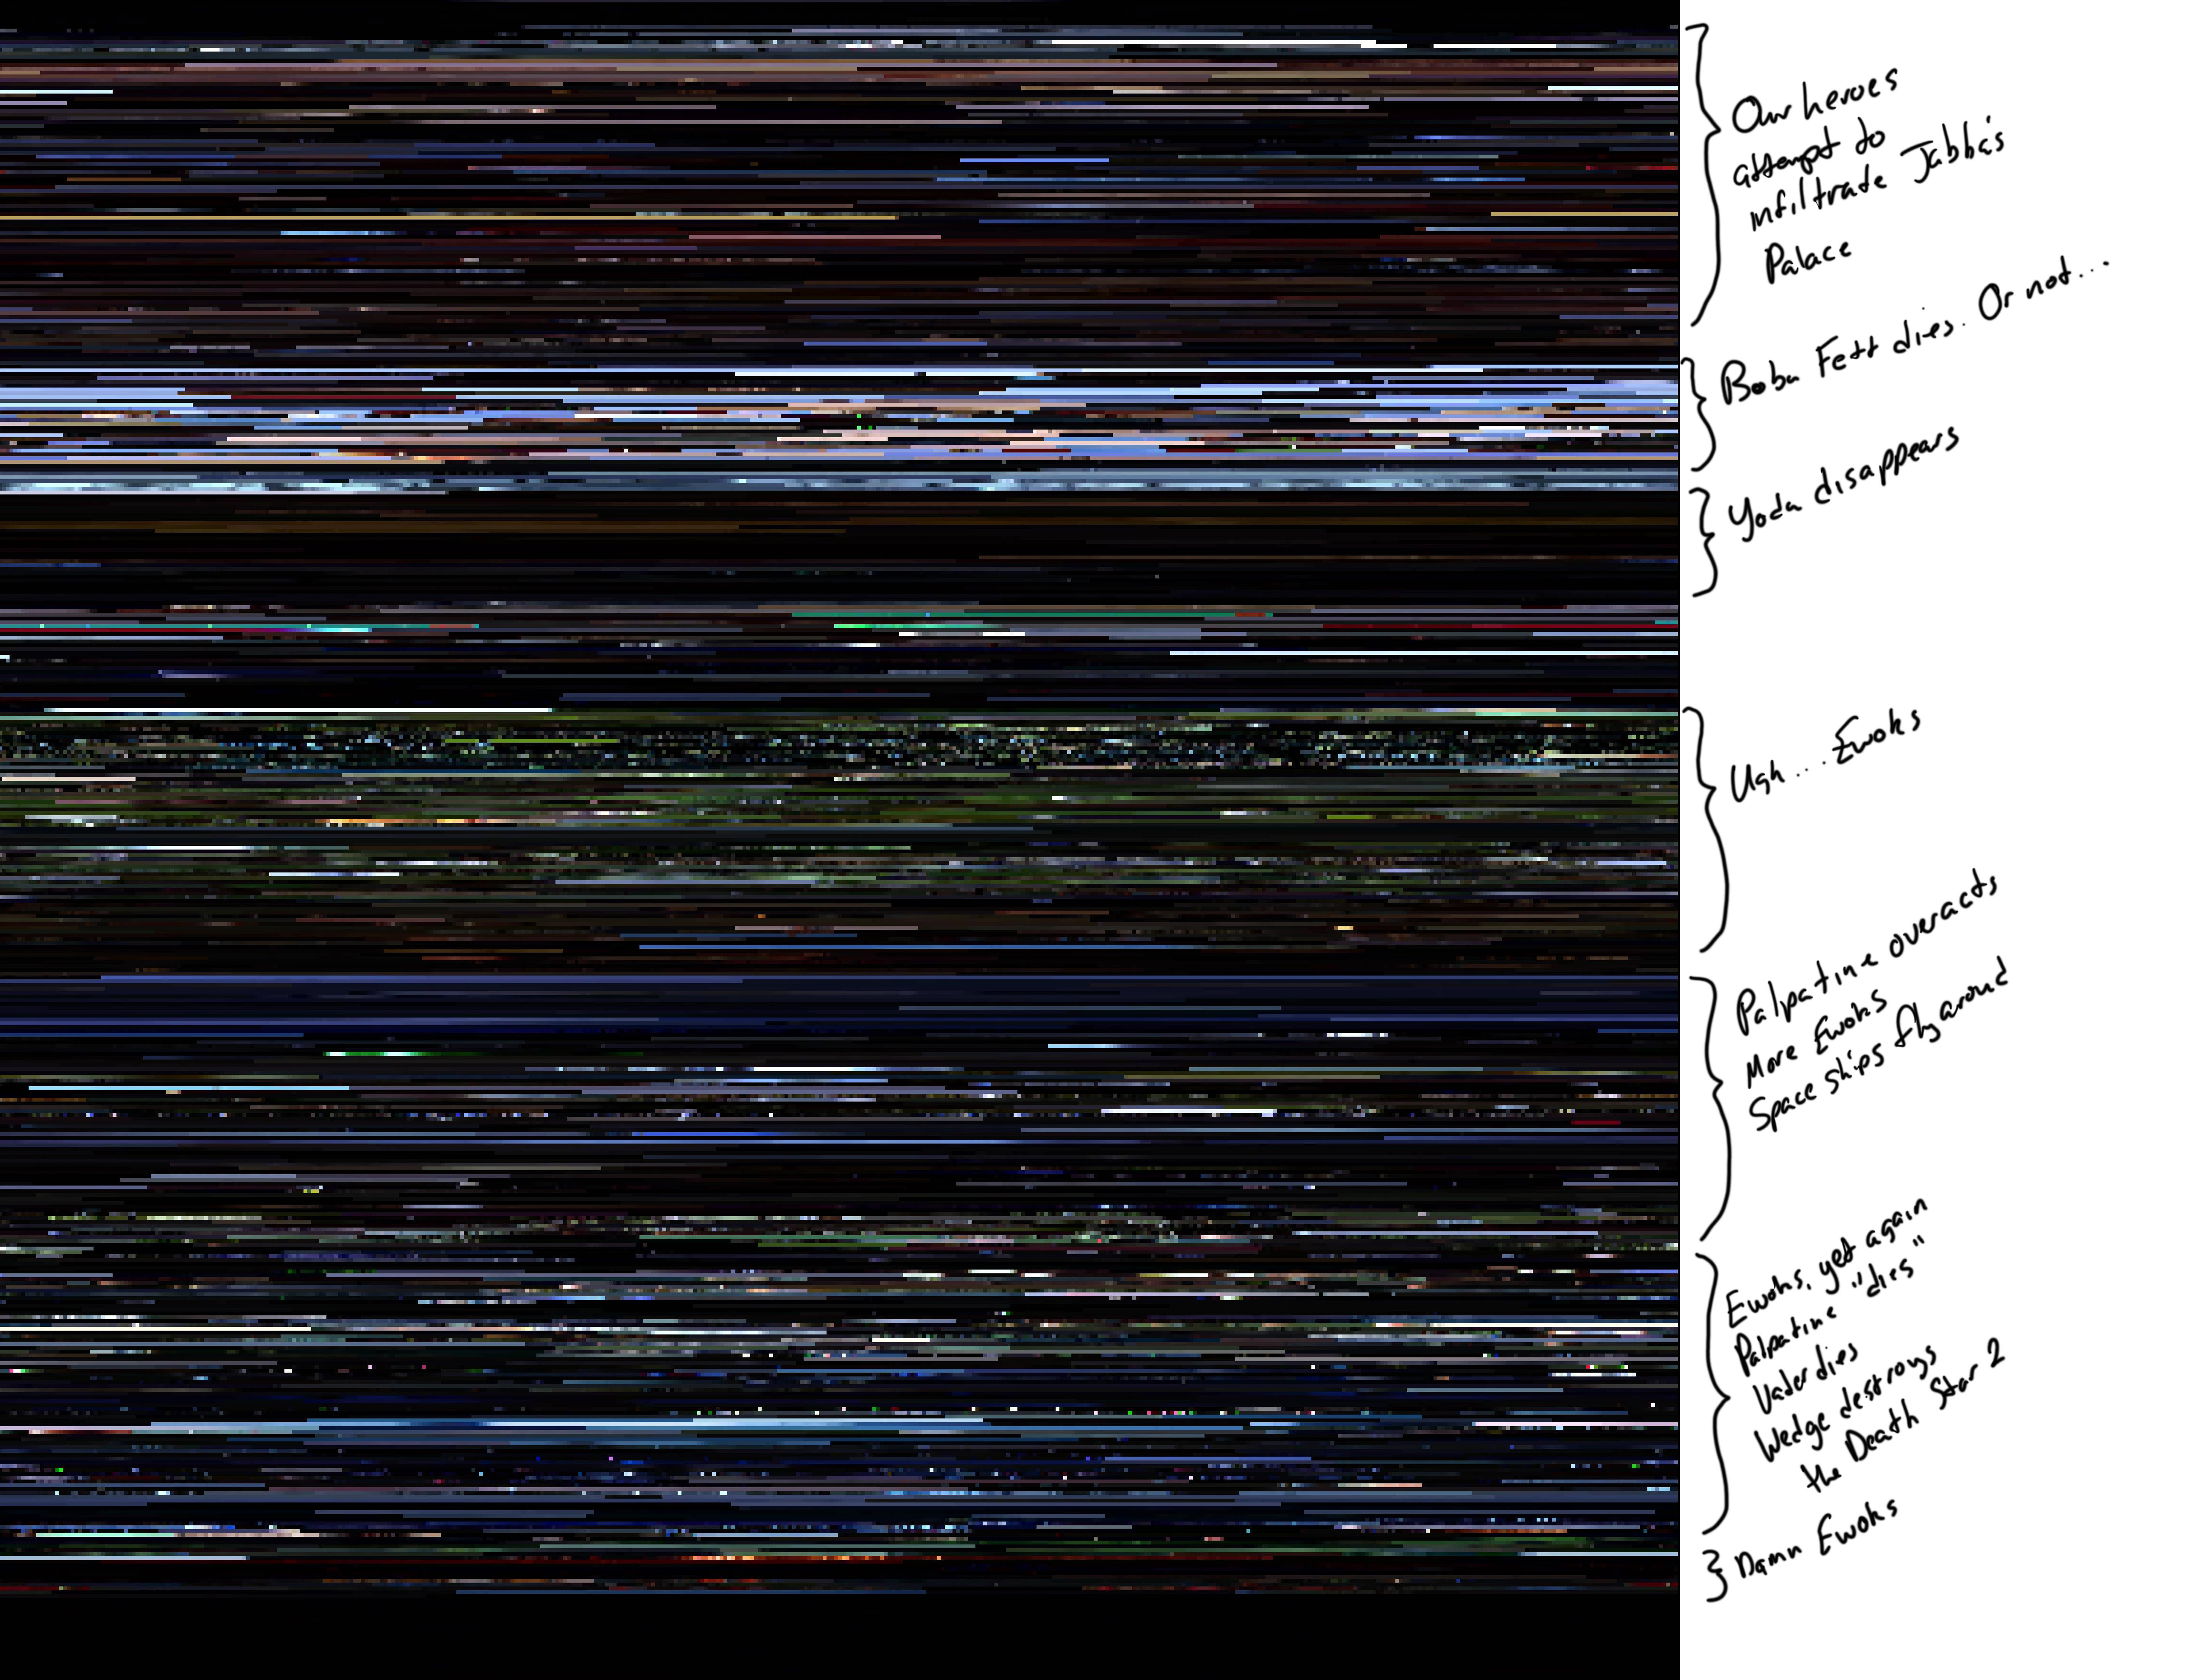 Our heroes
attempt to
infiltrate Jabba's
Palace
Boba Fett dies. Or not...
Yoda disappears
Ugh.... Ewoks
Palpatine overacts
More Ewoks
Space ships fly around
Ewoks, yet again
Palpatine "dies"
Vader dies
Wedge destroys
the Death Star 2
Damn Ewoks